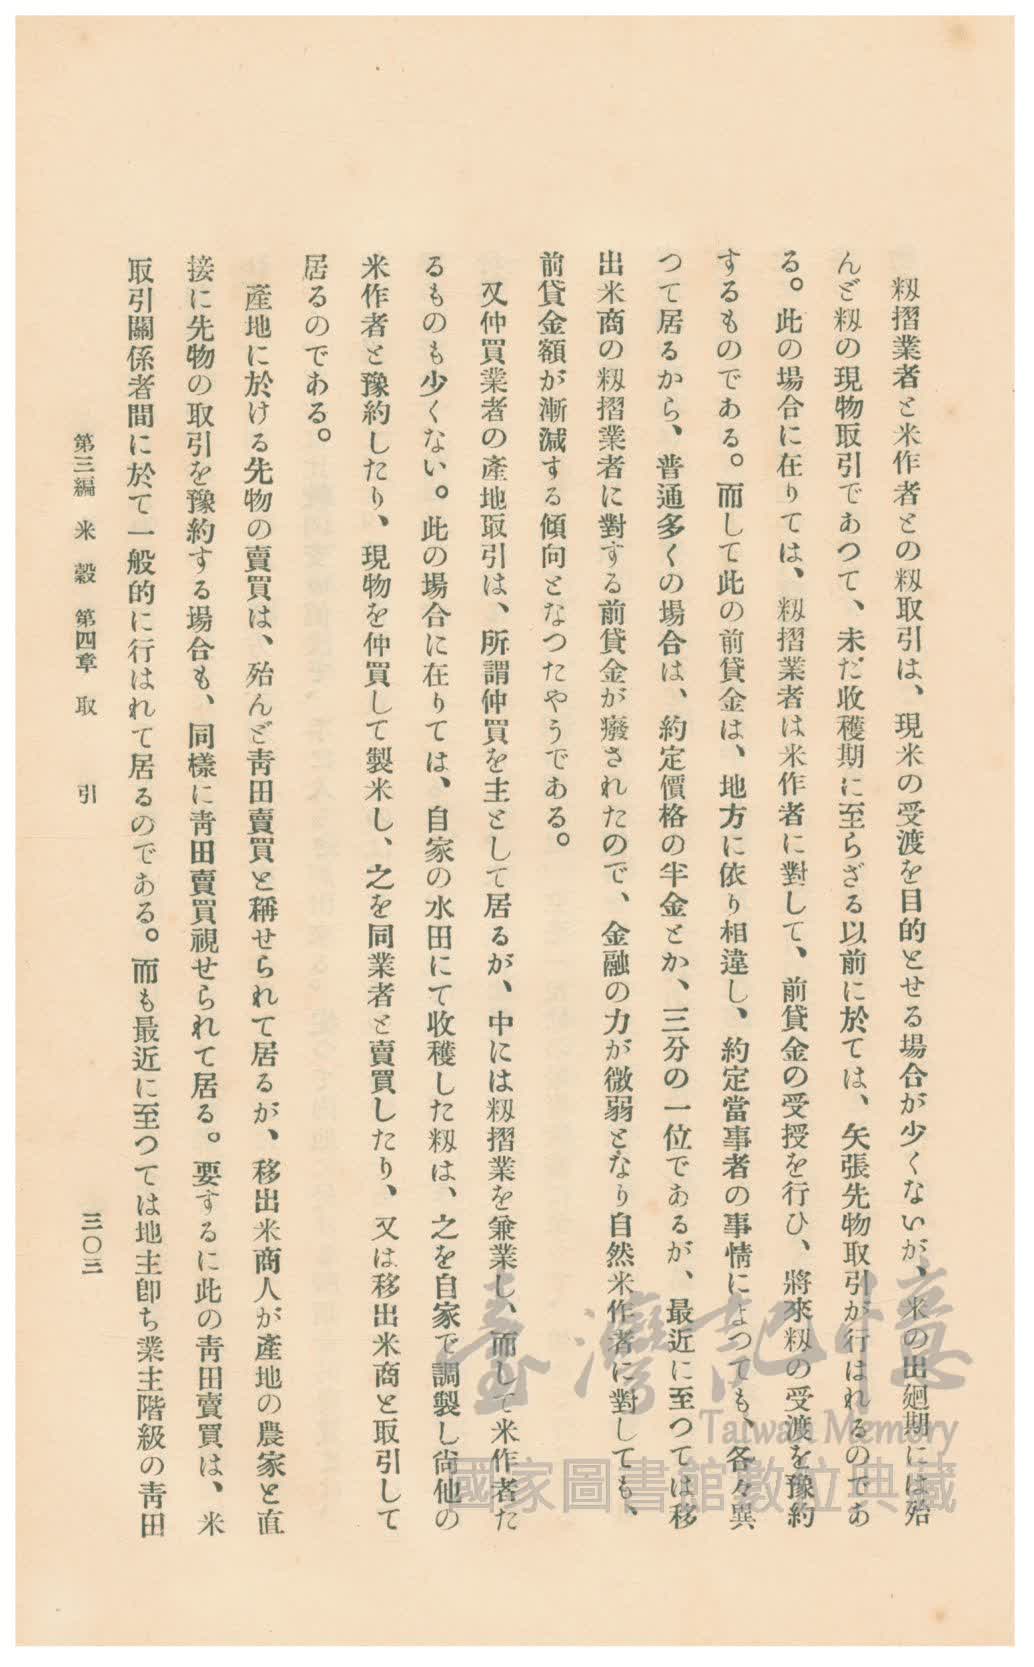 籾摺業者と米作者との籾取引は、現米の受渡を目的とせる場合が少くないが、米の出廻期には殆
んど籾の現物取引であつて、未だ收穫期に至らざる以前に於ては、矢張先物取引が行はれるのであ
る。此の場合に在りては、籾摺業者は米作者に對して、前貸金の受授を行ひ、將來籾の受渡を豫約
するものである。而して此の前貸金は、地方に依り相違し、約定當事者の事情によつても、各々異
つて居るから、普通多くの場合は、約定價格の半金とか、三分の一位であるが、最近に至つては移
出米商の籾摺業者に對する前貸金が癈されたので、金融の力が微弱となり自然米作者に對しても、
前貸金額が漸減する傾向となつたやうである。
又仲買業者の產地取引は、所謂仲買を主として居るが、中には籾摺業を兼業し、而して米作者た
るものも少くない。此の場合に在りては、自家の水田にて收穫した籾は、之を自家で調製し尙他の
米作者と豫約したり、現物を仲買して製米し、之を同業者と賣買したり、又は移出米商と取引して
居るのである。
產地に於ける先物の賣買は、殆んど靑田賣買と稱せられて居るが、移出米商人が產地の農家と直
接に先物の取引を豫約する場合も、同樣に靑田賣買視せられて居る。要するに此の靑田賣買は、米
取引關係者間に於て一般的に行はれて居るのである。而も最近に至つては地主卽ち業主階級の靑田
第三編 米 穀 第四章 取 引
三〇三
臺灣記憶
Taiwan Memory
國家圖書館數位典藏